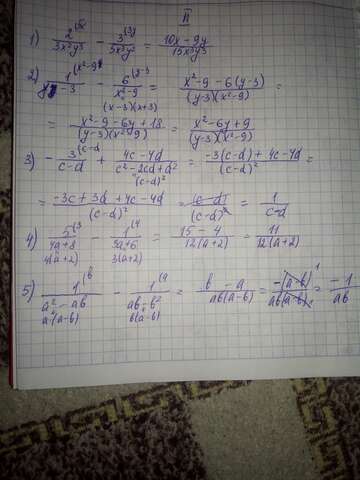 II
1) 2^(5x / 3x²y³ - 3^(3y / 5x³y² = 10x - 9y / 15x³y³
2) 1^(x²-9 / y - 3 - 6^(y-3 / x² - 9 = x² - 9 - 6(y - 3) / (y - 3)(x² - 9) =
(x - 3)(x + 3)
= x² - 9 - 6y + 18 / (y - 3)(x² - 9) = x² - 6y + 9 / (y - 3)(x² - 9)
3) - 3^(c-d / c - d + 4c - 4d / c² - 2cd + d² = -3(c - d) + 4c - 4d / (c - d)² =
(c - d)²
= -3c + 3d + 4c - 4d / (c - d)² = (c - d)¹ / (c - d)² = 1 / c - d
4) 5^(3 / 4a + 8 - 1^(4 / 3a + 6 = 15 - 4 / 12(a + 2) = 11 / 12(a + 2)
4(a + 2) 3(a + 2)
5) 1^(b / a² - ab - 1^(a / ab - b² = b - a / ab(a - b) = -(a - b) 1 / ab(a - b) = -1 / ab
a·(a - b) b(a - b)